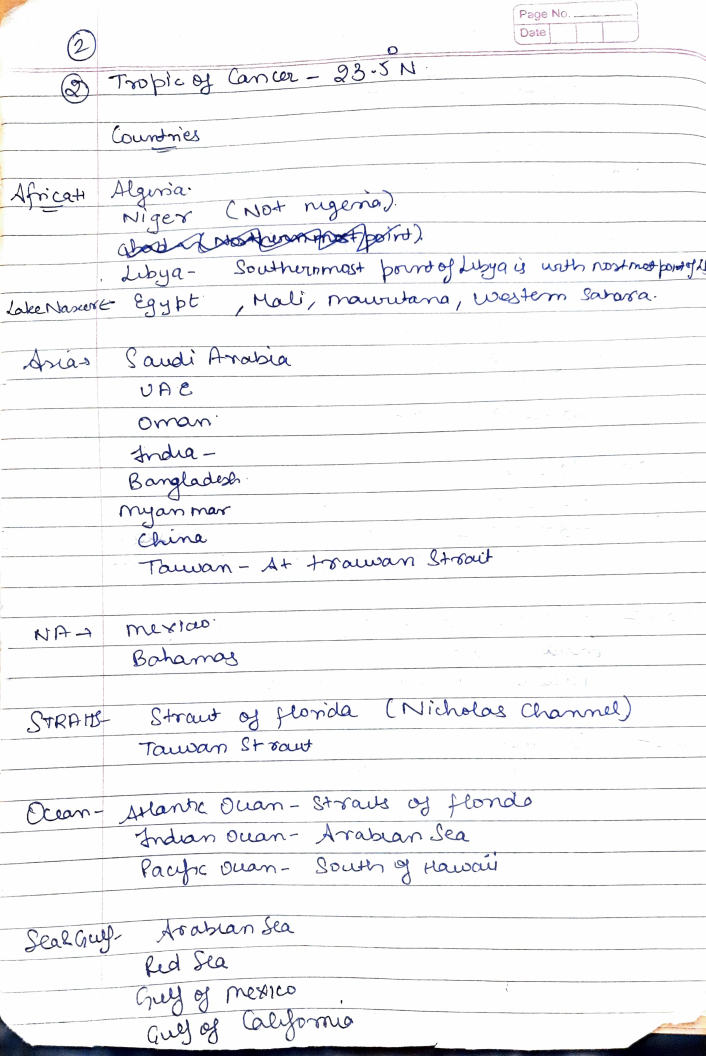 Page No.
Date
②
② Tropic of Cancer – 23.5°N
Countries
Africa→ Algeria.
Niger (Not nigeria).
(Northernmost point).
Libya- Southernmost point of Libya is with
Lake Nasser← Egypt , Mali, mauritana, western Sahara.
Asia→ Saudi Arabia
UAE
Oman
India –
Bangladesh
Myanmar
China
Taiwan – At traiwan Strait
NA → mexico.
Bahamas
STRAITS- Strait of florida (Nicholas Channel)
Taiwan Strait
Ocean- Atlantic Ocean – Straits of florida
Indian Ocean – Arabian Sea
Pacific Ocean – South of Hawaii
Sea&Gulf- Arabian Sea
Red Sea
Gulf of mexico
Gulf of California